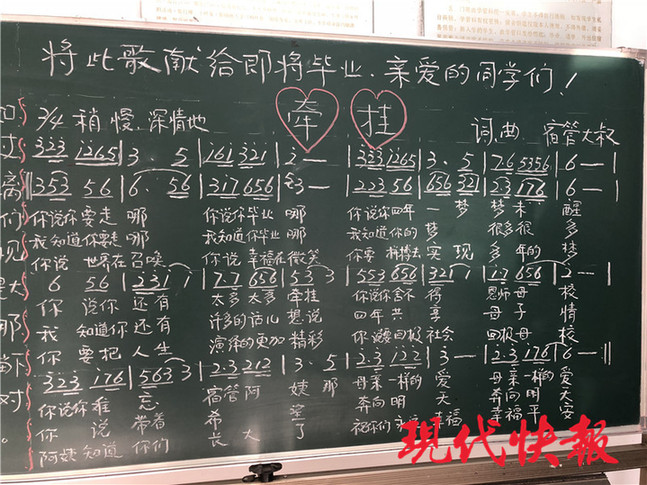 将此歌献给即将毕业、亲爱的同学们！
牵 挂
稍慢、深情地 词、曲 宿管大叔
323 1265 | 3 · 5 | 161 321 | 2 — | 333 1265 | 3 · 5 | 76 5356 | 6 — |
353 56 | 6 · 56 | 317 656 | 3 — | 223 56 | 656 321 | 23 176 | 6 — |
你说你要走 哪 你说你毕业 哪 你说你四年 一 梦 梦未 醒
我知道你要走 哪 我知道你毕业 哪 我知道你的 梦 很多很 多
你说 世界在召唤 你说 幸福在微笑 你要 拼搏去 实现 多 年的 梦
6 56 | 2 3 1 | 1 | 77 656 | 53 3 | 553 656 | 321 1 | 17 656 | 2 — |
你 说你 还有 太多 太多 牵挂 你说你舍不 得 恩师母 校
我 知道你 还有 许多的 话儿 想说 四年 共 享 母 子 情
你 要把 人生 演绎的更加 精彩 你说要回报 社会 回报母 校
323 176 | 563 3 | 2·3 212 | 3 · 5 | 2·3 122 | 3 — | 2·3 176 | 6 — ‖
你说你难 忘 宿管阿 姨 那 母亲一样的 爱 母亲一样的 爱
你 说 带着 希 望 奔向明 天 奔向明 天
阿姨知道 你们 长大 了 祝你们 幸福 幸福平 安
现代快报